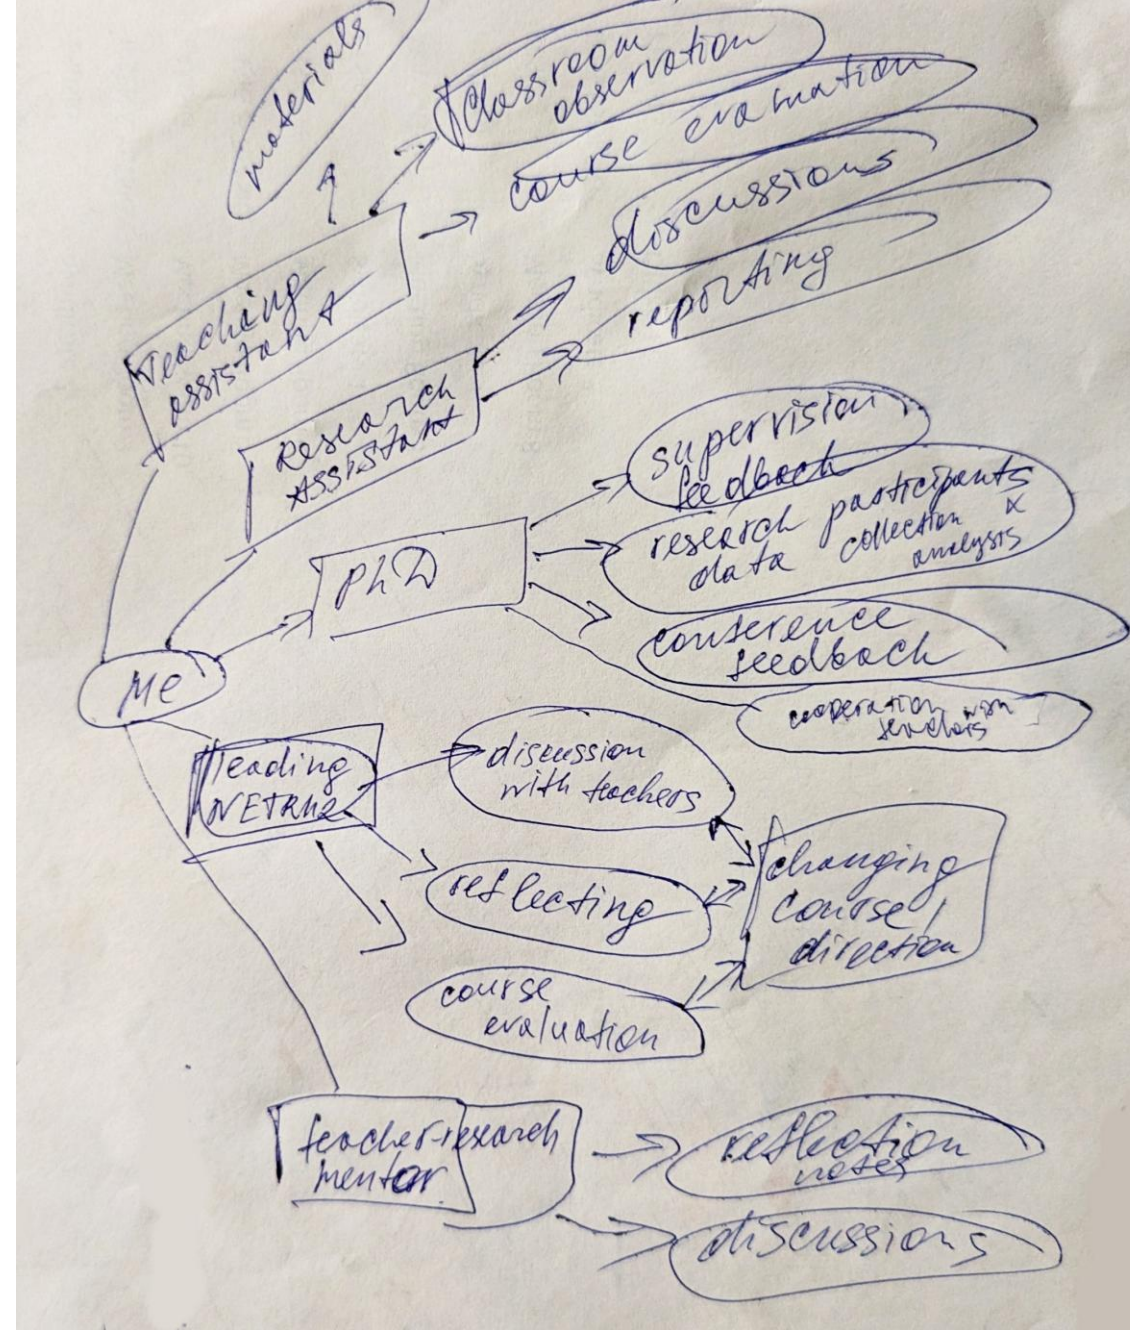 materials
Classroom
observation
course evaluation
discussions
reporting
Teaching
assistant
Research
Assistant
supervision
feedback
research participants
data collection &
analysis
PhD
conference
feedback
cooperation with
Me
leading
discussion
with teachers
reflecting
changing
course /
direction
course
evaluation
teacher-research
mentor
reflection
notes
discussions